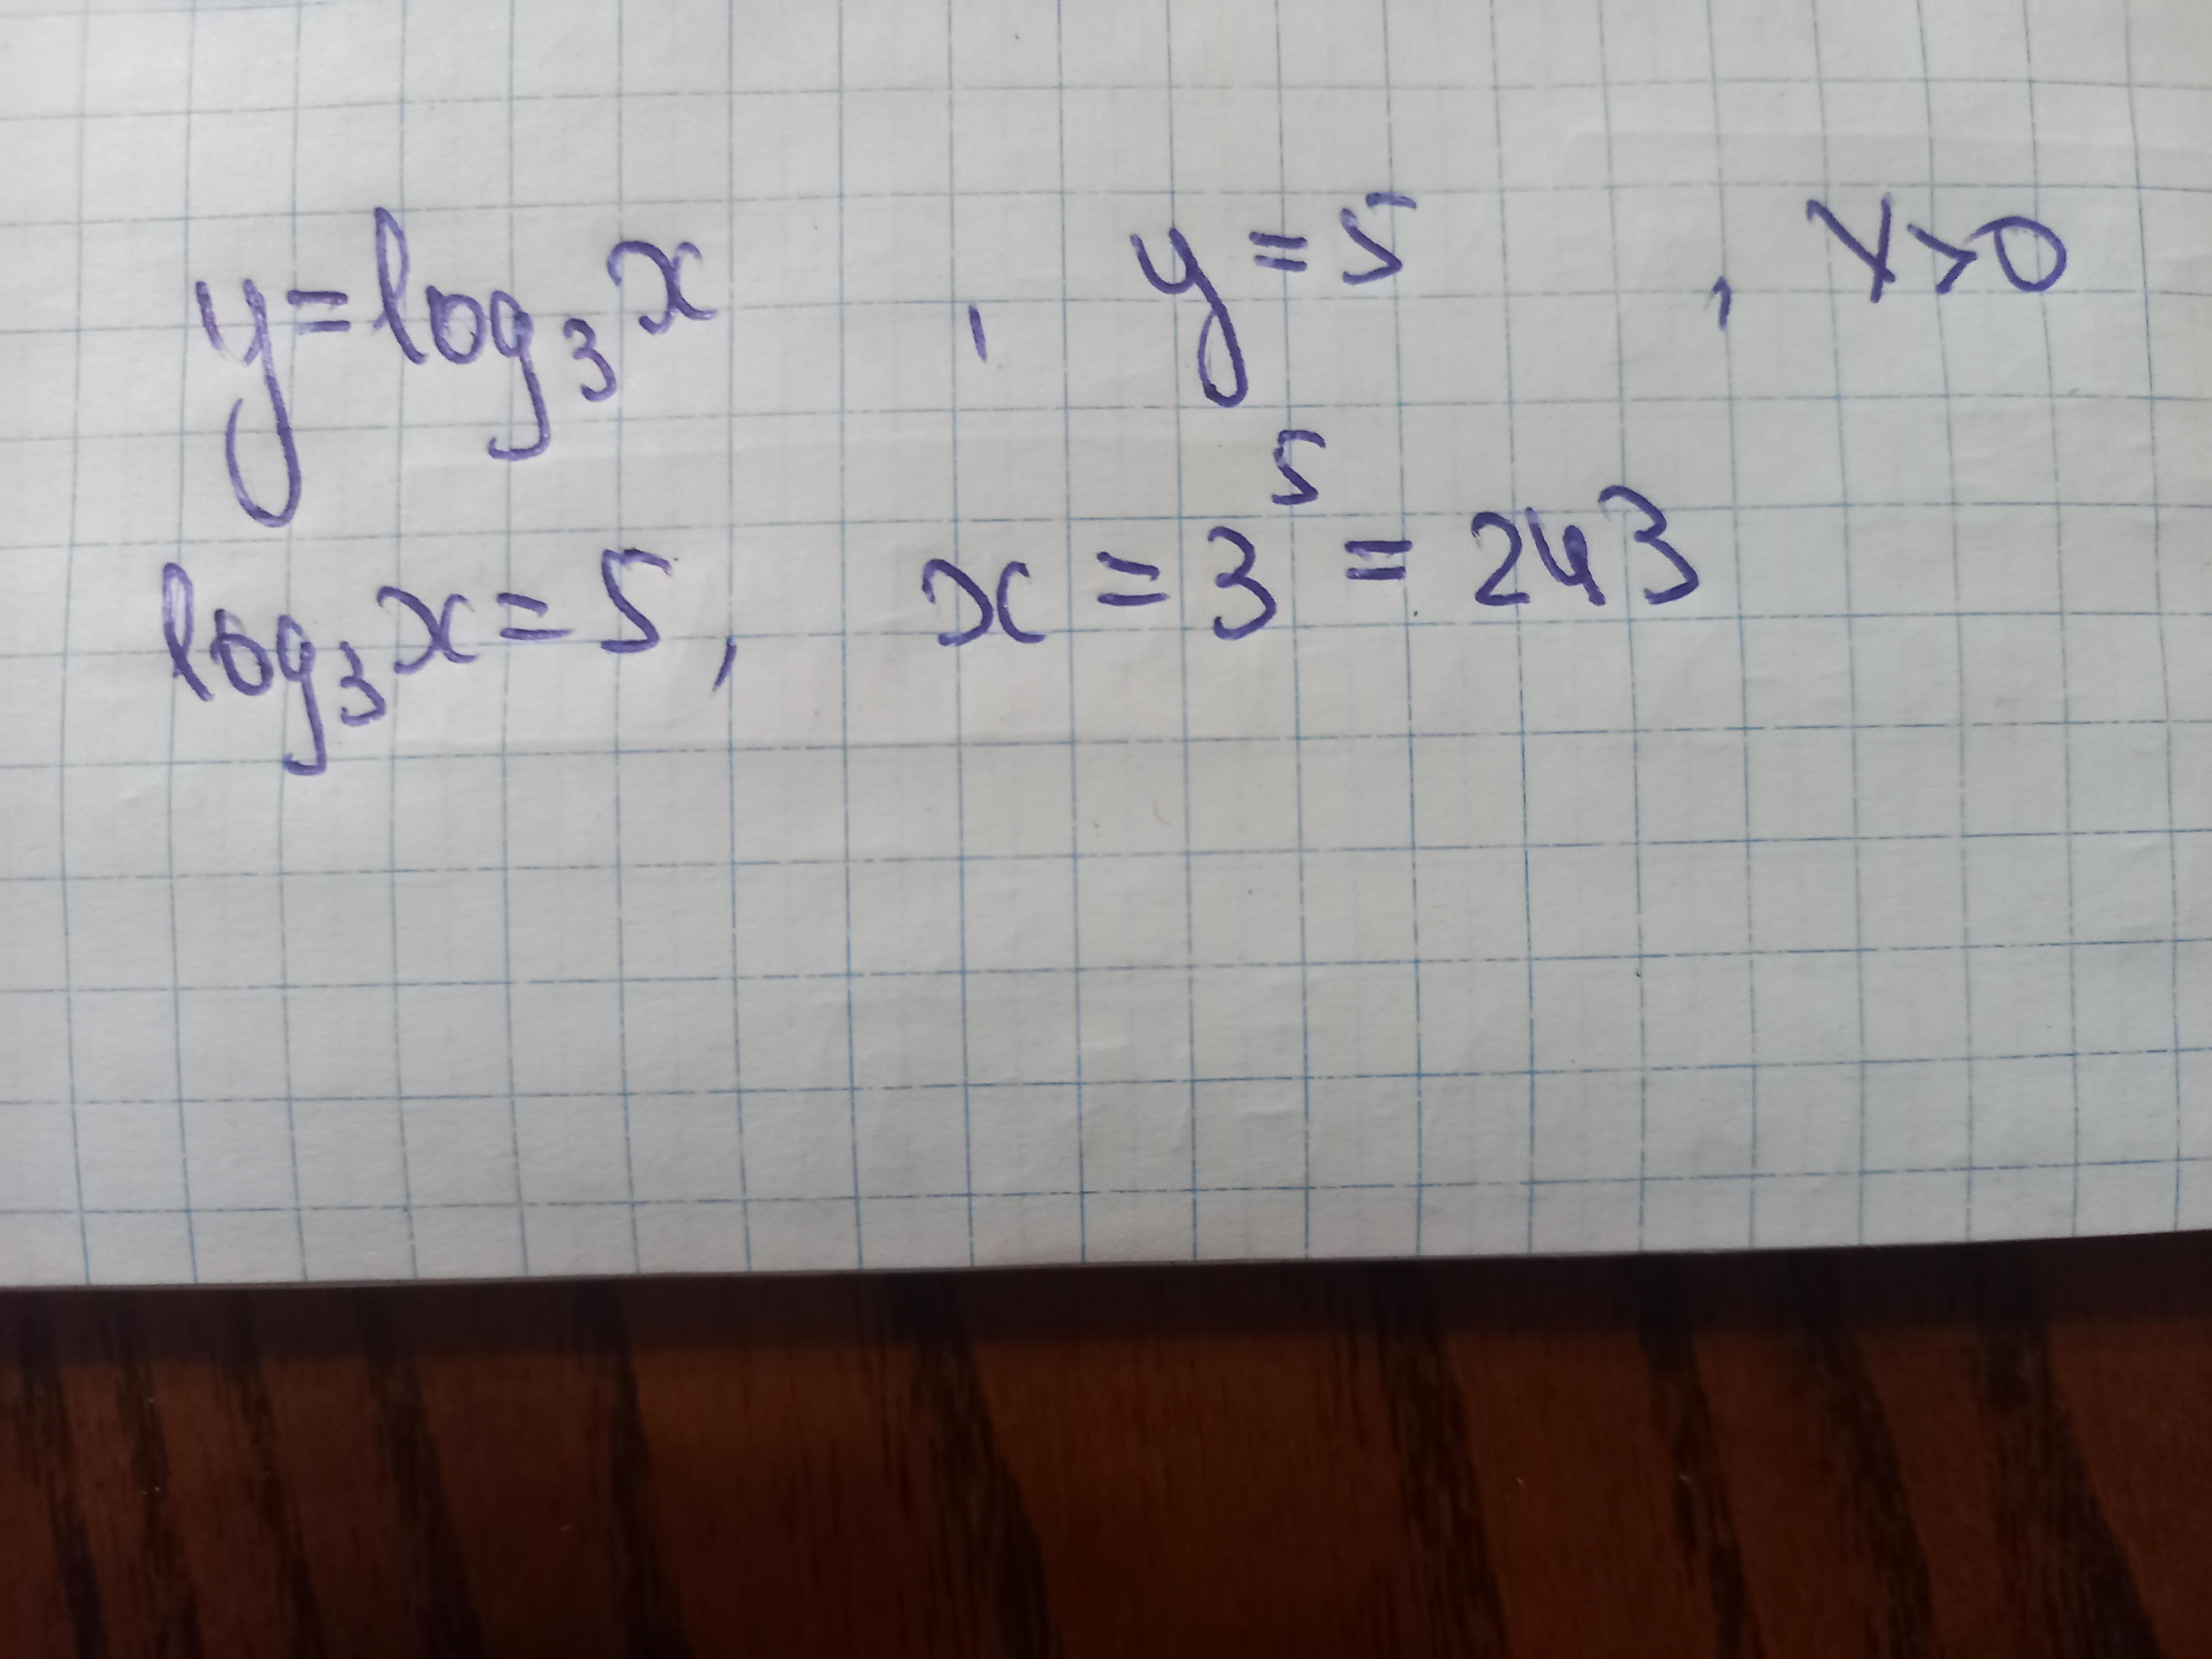 y = log₃x , y = 5 , x > 0
log₃x = 5, x = 3⁵ = 243